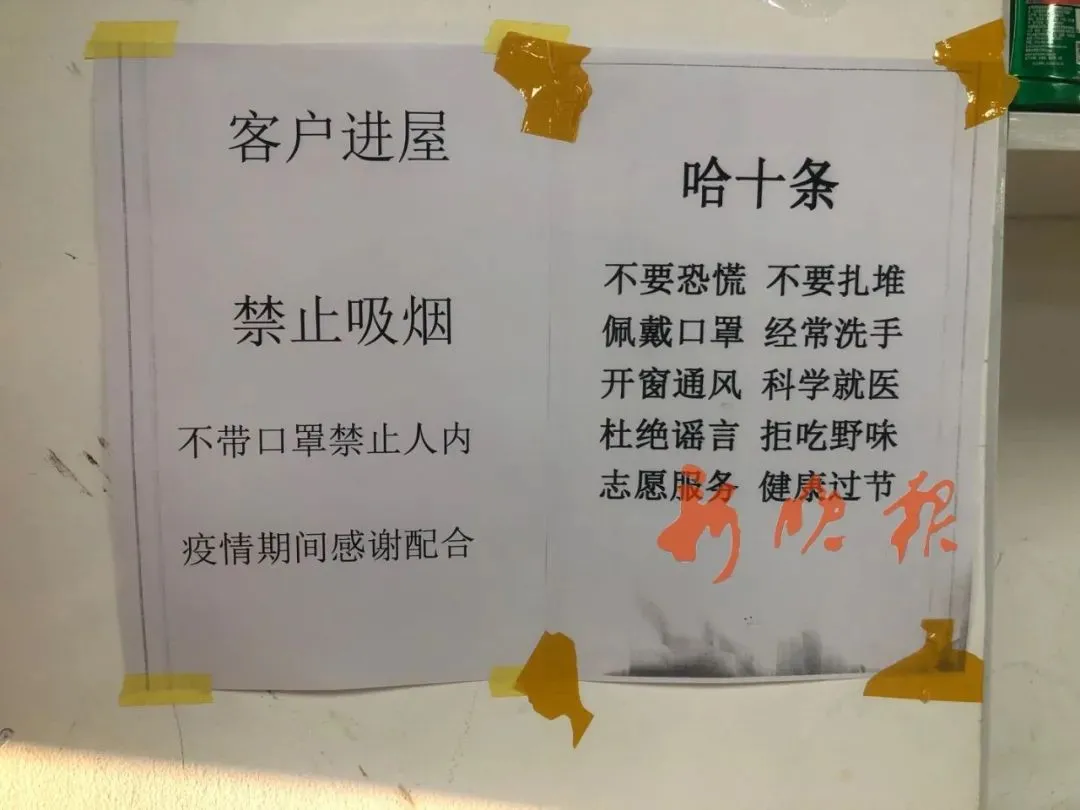 客户进屋
禁止吸烟
不带口罩禁止人内
疫情期间感谢配合
哈十条
不要恐慌 不要扎堆
佩戴口罩 经常洗手
开窗通风 科学就医
杜绝谣言 拒吃野味
志愿服务 健康过节
新晚报